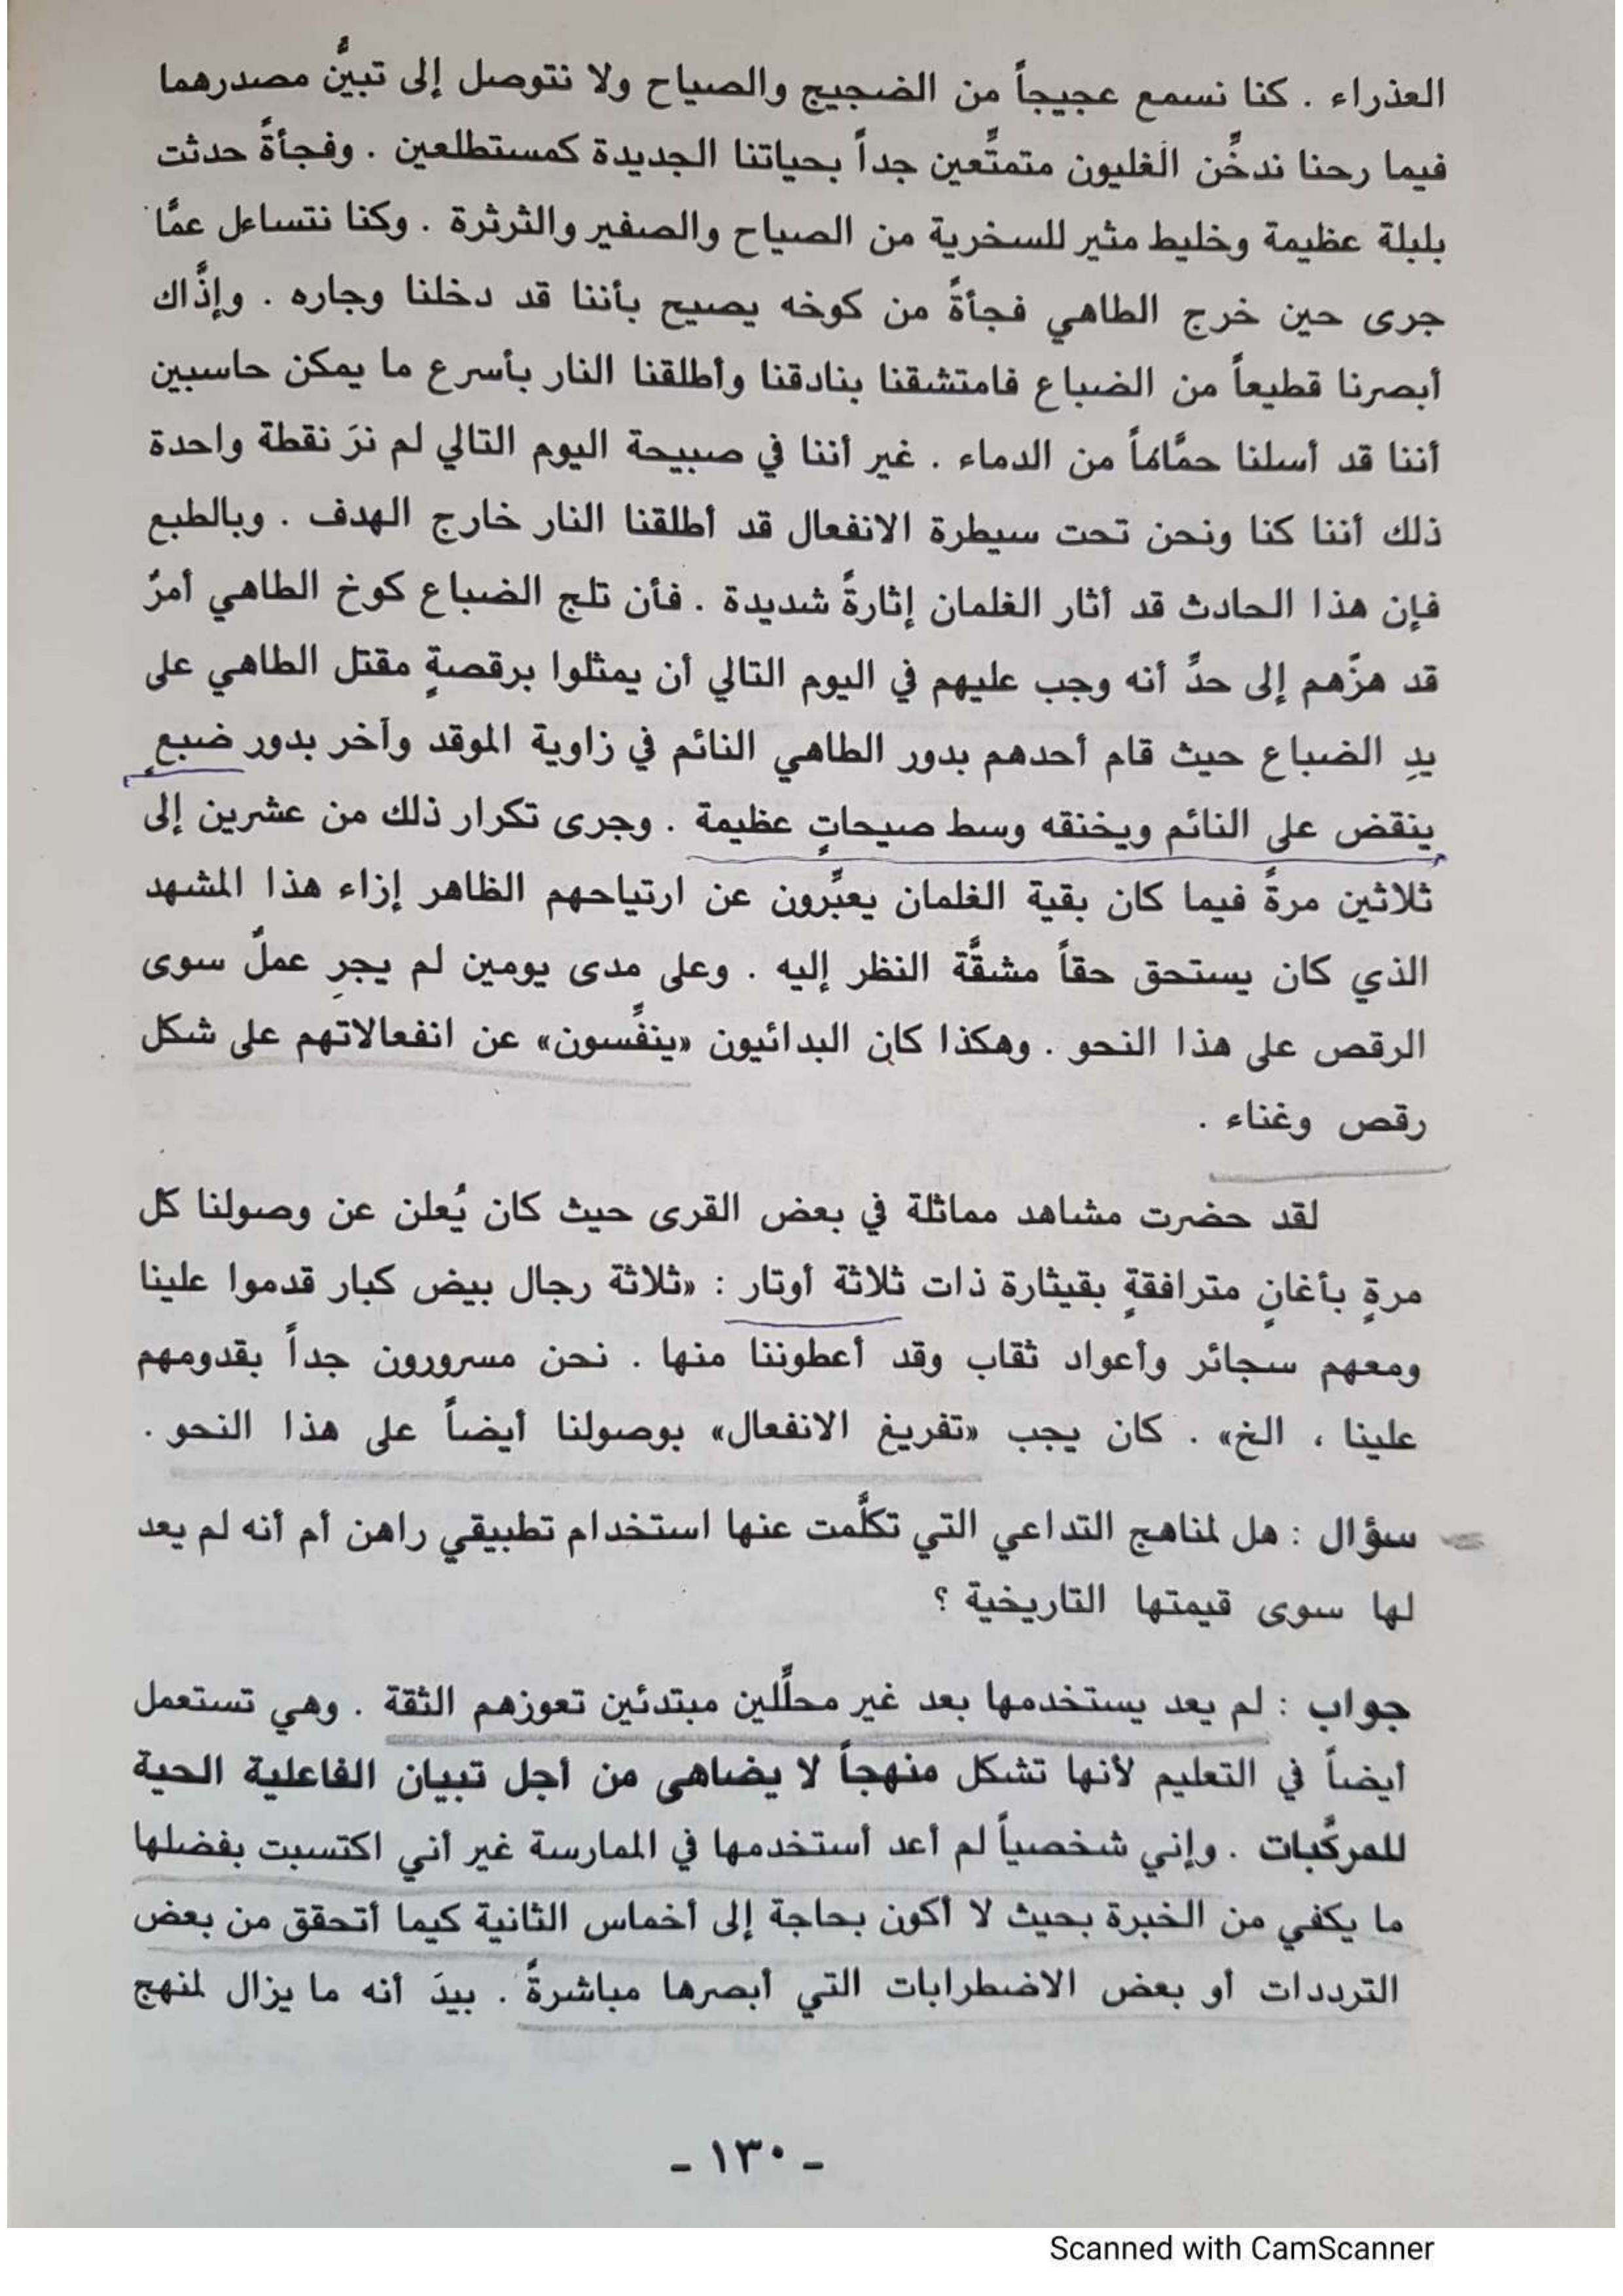 العذراء . كنا نسمع عجيجاً من الضجيج والصياح ولا نتوصل إلى تبيُّن مصدرهما
فيما رحنا ندخِّن الغليون متمتِّعين جداً بحياتنا الجديدة كمستطلعين . وفجأةً حدثت
بلبلة عظيمة وخليط مثير للسخرية من الصياح والصفير والثرثرة . وكنا نتساءل عمَّا
جرى حين خرج الطاهي فجأةً من كوخه يصيح بأننا قد دخلنا وجاره . وإذَّاك
أبصرنا قطيعاً من الضباع فامتشقنا بنادقنا وأطلقنا النار بأسرع ما يمكن حاسبين
أننا قد أسلنا حمَّاماً من الدماء . غير أننا في صبيحة اليوم التالي لم نرَ نقطة واحدة
ذلك أننا كنا ونحن تحت سيطرة الانفعال قد أطلقنا النار خارج الهدف . وبالطبع
فإن هذا الحادث قد أثار الغلمان إثارةً شديدة . فأن تلج الضباع كوخ الطاهي أمرٌ
قد هزَّهم إلى حدِّ أنه وجب عليهم في اليوم التالي أن يمثلوا برقصةٍ مقتل الطاهي على
يدِ الضباع حيث قام أحدهم بدور الطاهي النائم في زاوية الموقد وآخر بدور ضبعٍ
ينقض على النائم ويخنقه وسط صيحاتٍ عظيمة . وجرى تكرار ذلك من عشرين إلى
ثلاثين مرةً فيما كان بقية الغلمان يعبِّرون عن ارتياحهم الظاهر إزاء هذا المشهد
الذي كان يستحق حقاً مشقَّة النظر إليه . وعلى مدى يومين لم يجرِ عملٌ سوى
الرقص على هذا النحو . وهكذا كان البدائيون «ينفِّسون» عن انفعالاتهم على شكل
رقص وغناء .
لقد حضرت مشاهد مماثلة في بعض القرى حيث كان يُعلن عن وصولنا كل
مرةٍ بأغانٍ مترافقةٍ بقيثارة ذات ثلاثة أوتار : «ثلاثة رجال بيض كبار قدموا علينا
ومعهم سجائر وأعواد ثقاب وقد أعطوننا منها . نحن مسرورون جداً بقدومهم
علينا ، الخ» . كان يجب «تفريغ الانفعال» بوصولنا أيضاً على هذا النحو .
سؤال : هل لمناهج التداعي التي تكلَّمت عنها استخدام تطبيقي راهن أم أنه لم يعد
لها سوى قيمتها التاريخية ؟
جواب : لم يعد يستخدمها بعد غير محلِّلين مبتدئين تعوزهم الثقة . وهي تستعمل
أيضاً في التعليم لأنها تشكل منهجاً لا يضاهى من أجل تبيان الفاعلية الحية
للمركَّبات . وإني شخصياً لم أعد أستخدمها في الممارسة غير أني اكتسبت بفضلها
ما يكفي من الخبرة بحيث لا أكون بحاجة إلى أخماس الثانية كيما أتحقق من بعض
الترددات أو بعض الاضطرابات التي أبصرها مباشرةً . بيدَ أنه ما يزال لمنهج
ـ ١٣٠ ـ
Scanned with CamScanner